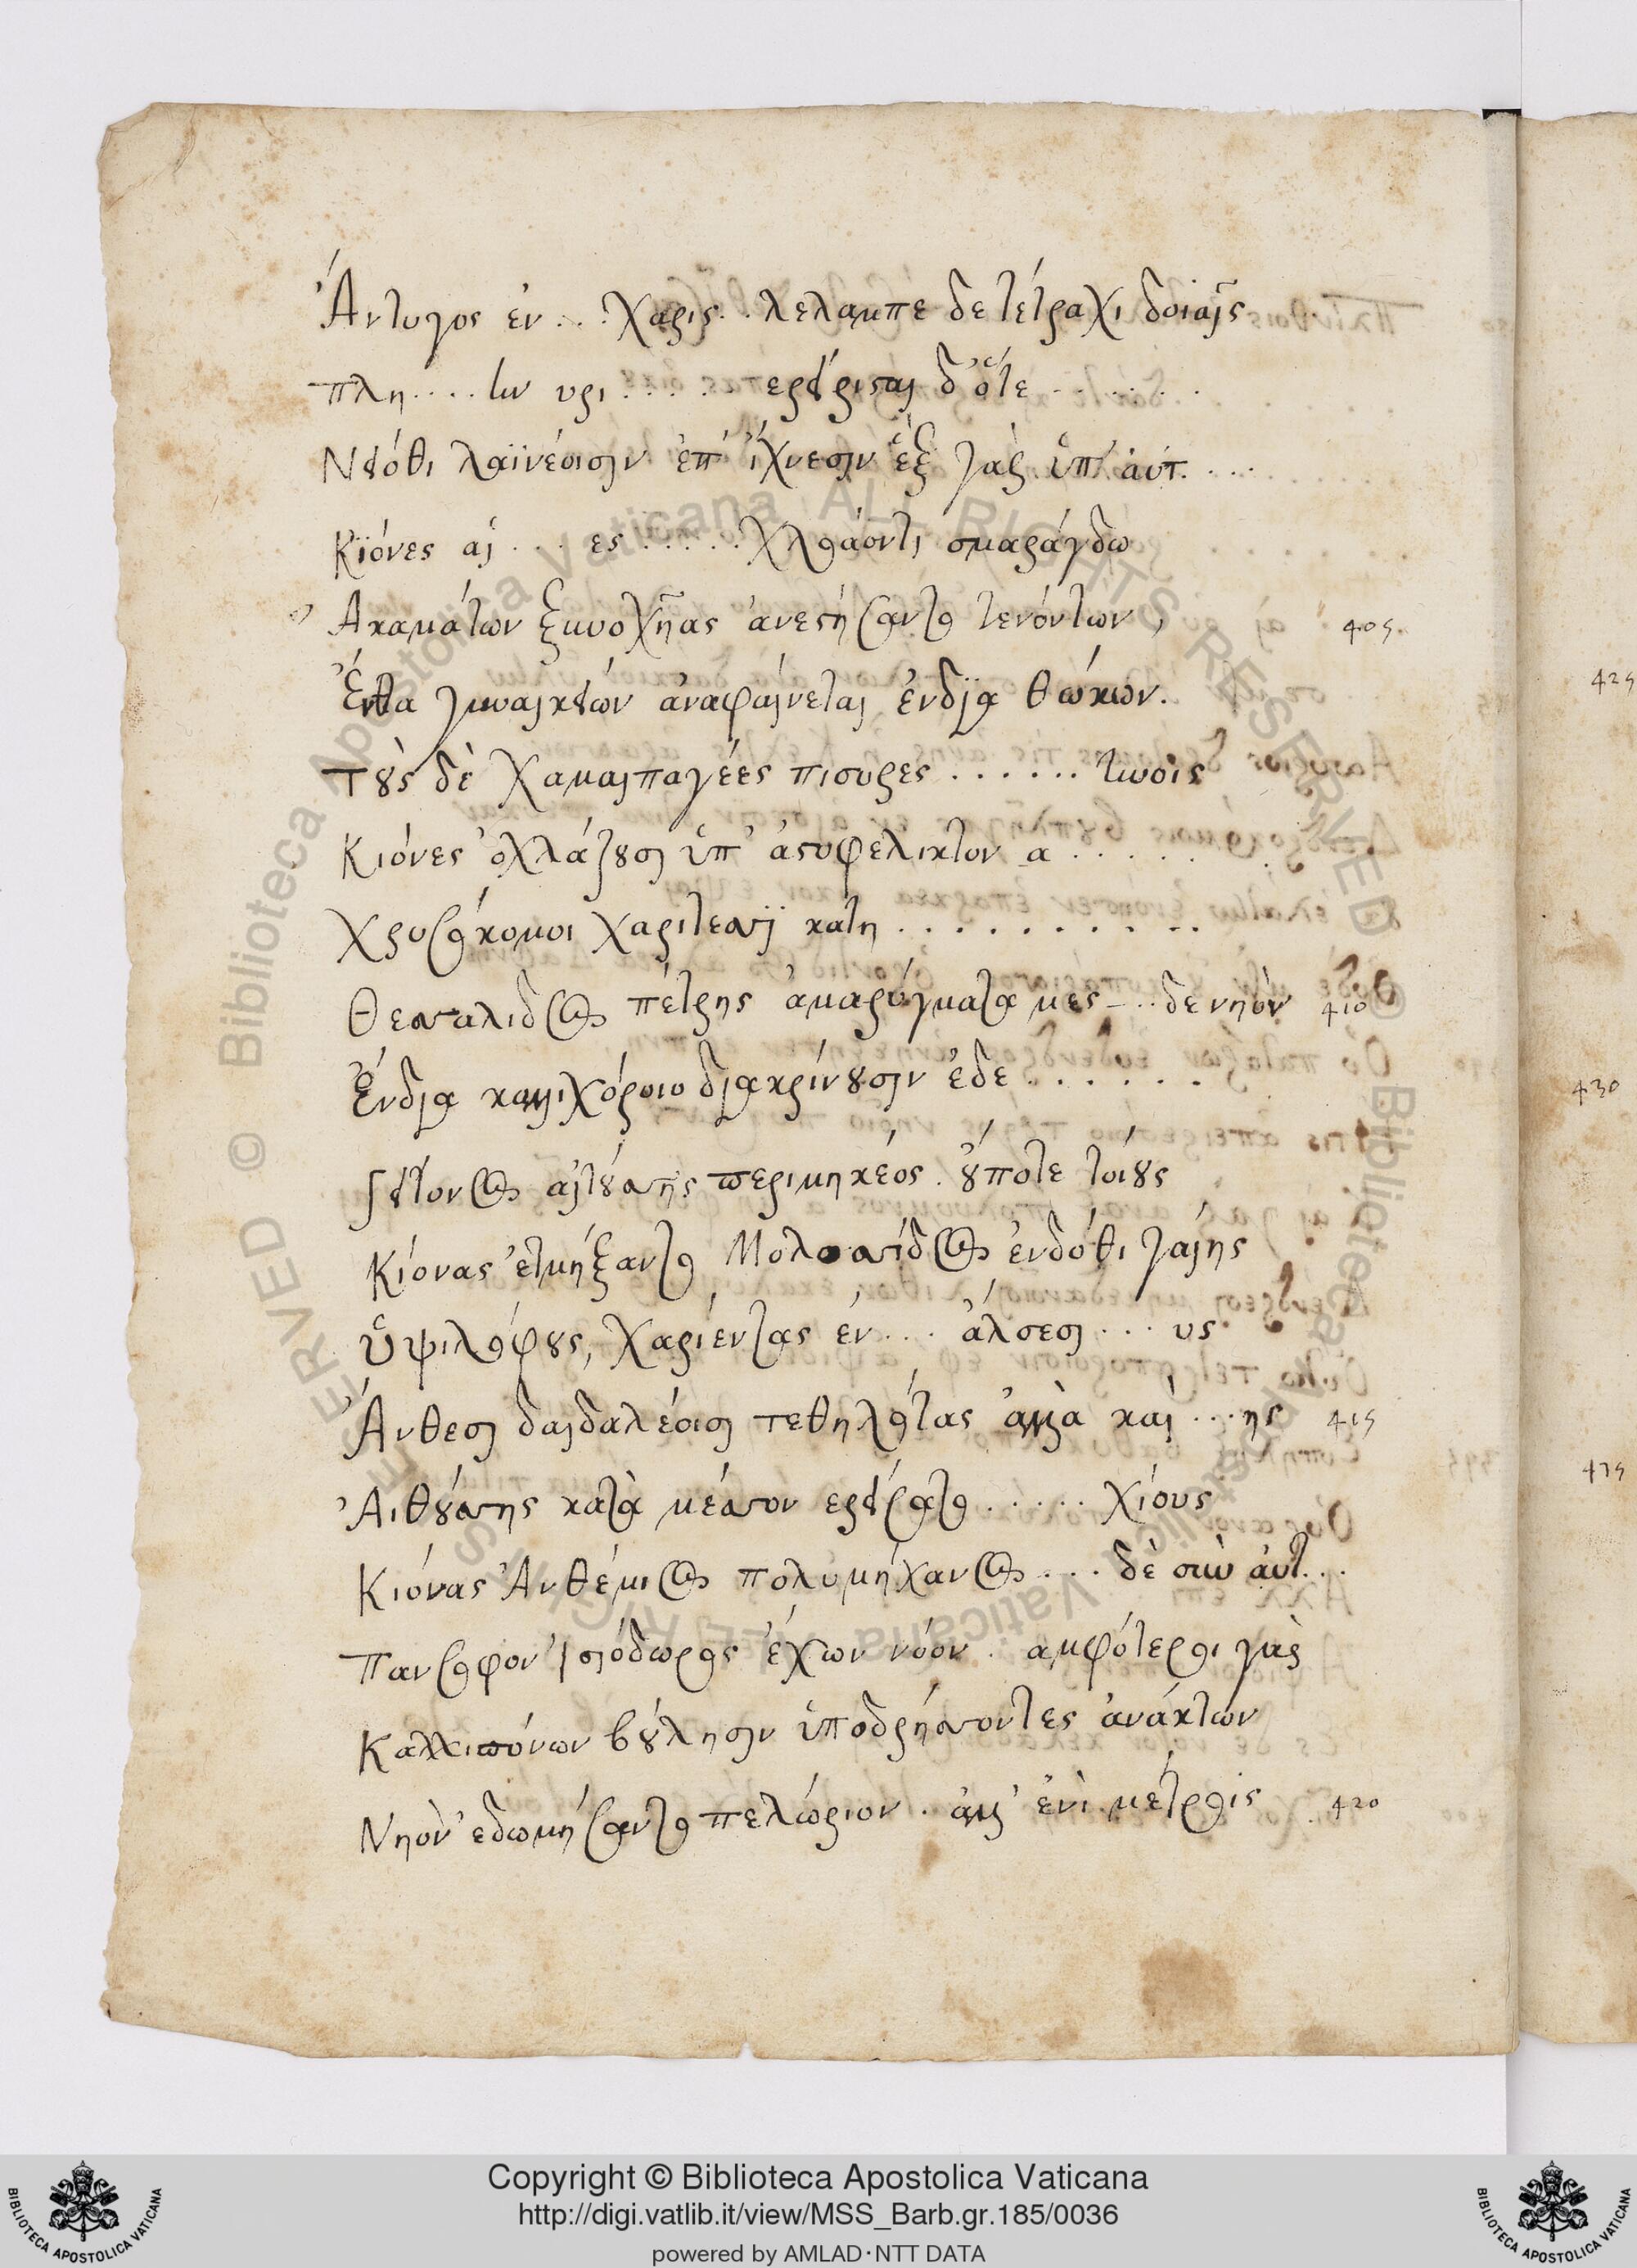 Ἄντυγος ἐν . . . χαρις . . λελαμπε δε τέτραχι δοιαῖς
πλη . . . . των υρι . . . . . ερείρισται δ' ὅτε . . . . . .
Νειόθι λαϊνέοισιν ἐπ' ἴχνεσιν ἓξ γὰρ ὑπ' αὐτ. . . .
Κϊόνες αἱ . . . ες . . . . . χλοάοντι σμαράγδω
Ἀκαμάτων ξυνοχῆας ἀνεστήσαντο τενόντων, 405.
Ἔνθα γυναικείων ἀναφαίνεται ἔνδια θώκων.
Τοὺς δὲ χαμαιπαγέες πισυρες . . . . . . τινοις
Κιόνες ὀχλάζουσι ὑπ' ἀστυφελικτον α . . . . .
Χρυσόκομοι χαριτεσσϊ κατη . . . . . . . . . .
Θεσσαλιδος πέτρης ἀμαρύγματα μες– . . δε νηόν 410
Ἔνδια καλλιχόροιο διακρίνουσιν ἐδε . . . . . .
γείτονος αἰτούσσης περιμηκέος. οὔποτε τοίους
Κίονας ἐτμήξαντο Μολοσσίδος ἐνδόθι γαίης
Ὑψιλόφους, χαρίεντας ἐν . . . ἄλσεσι . . . υς
Ἄνθεσι δαιδαλέοισι τεθηλότας ἀλλὰ καὶ . . . ης 415
Αιθούσσης κατὰ μέσσον ερείσατο . . . . . χίους
Κιόνας Ἀνθέμιος πολυμήχανος . . . δὲ σὺν ἀυτ. . .
Πανσοφον Ἰσιόδωρος ἔχων νόον. αμφότεροι γὰρ
Καλλιπόνων βούλησιν ὑποδρήσσοντες ἀνάκτων
Νηὸν ἐδωμήσαντο πελώριον. ἀλλ' ἐνὶ μέτροις 420
425
430
Copyright © Biblioteca Apostolica Vaticana
http://digi.vatlib.it/view/MSS_Barb.gr.185/0036
powered by AMLAD·NTT DATA
BIBLIOTECA APOSTOLICA VATICANA
BIBLIOTECA APOSTOLICA VATICANA